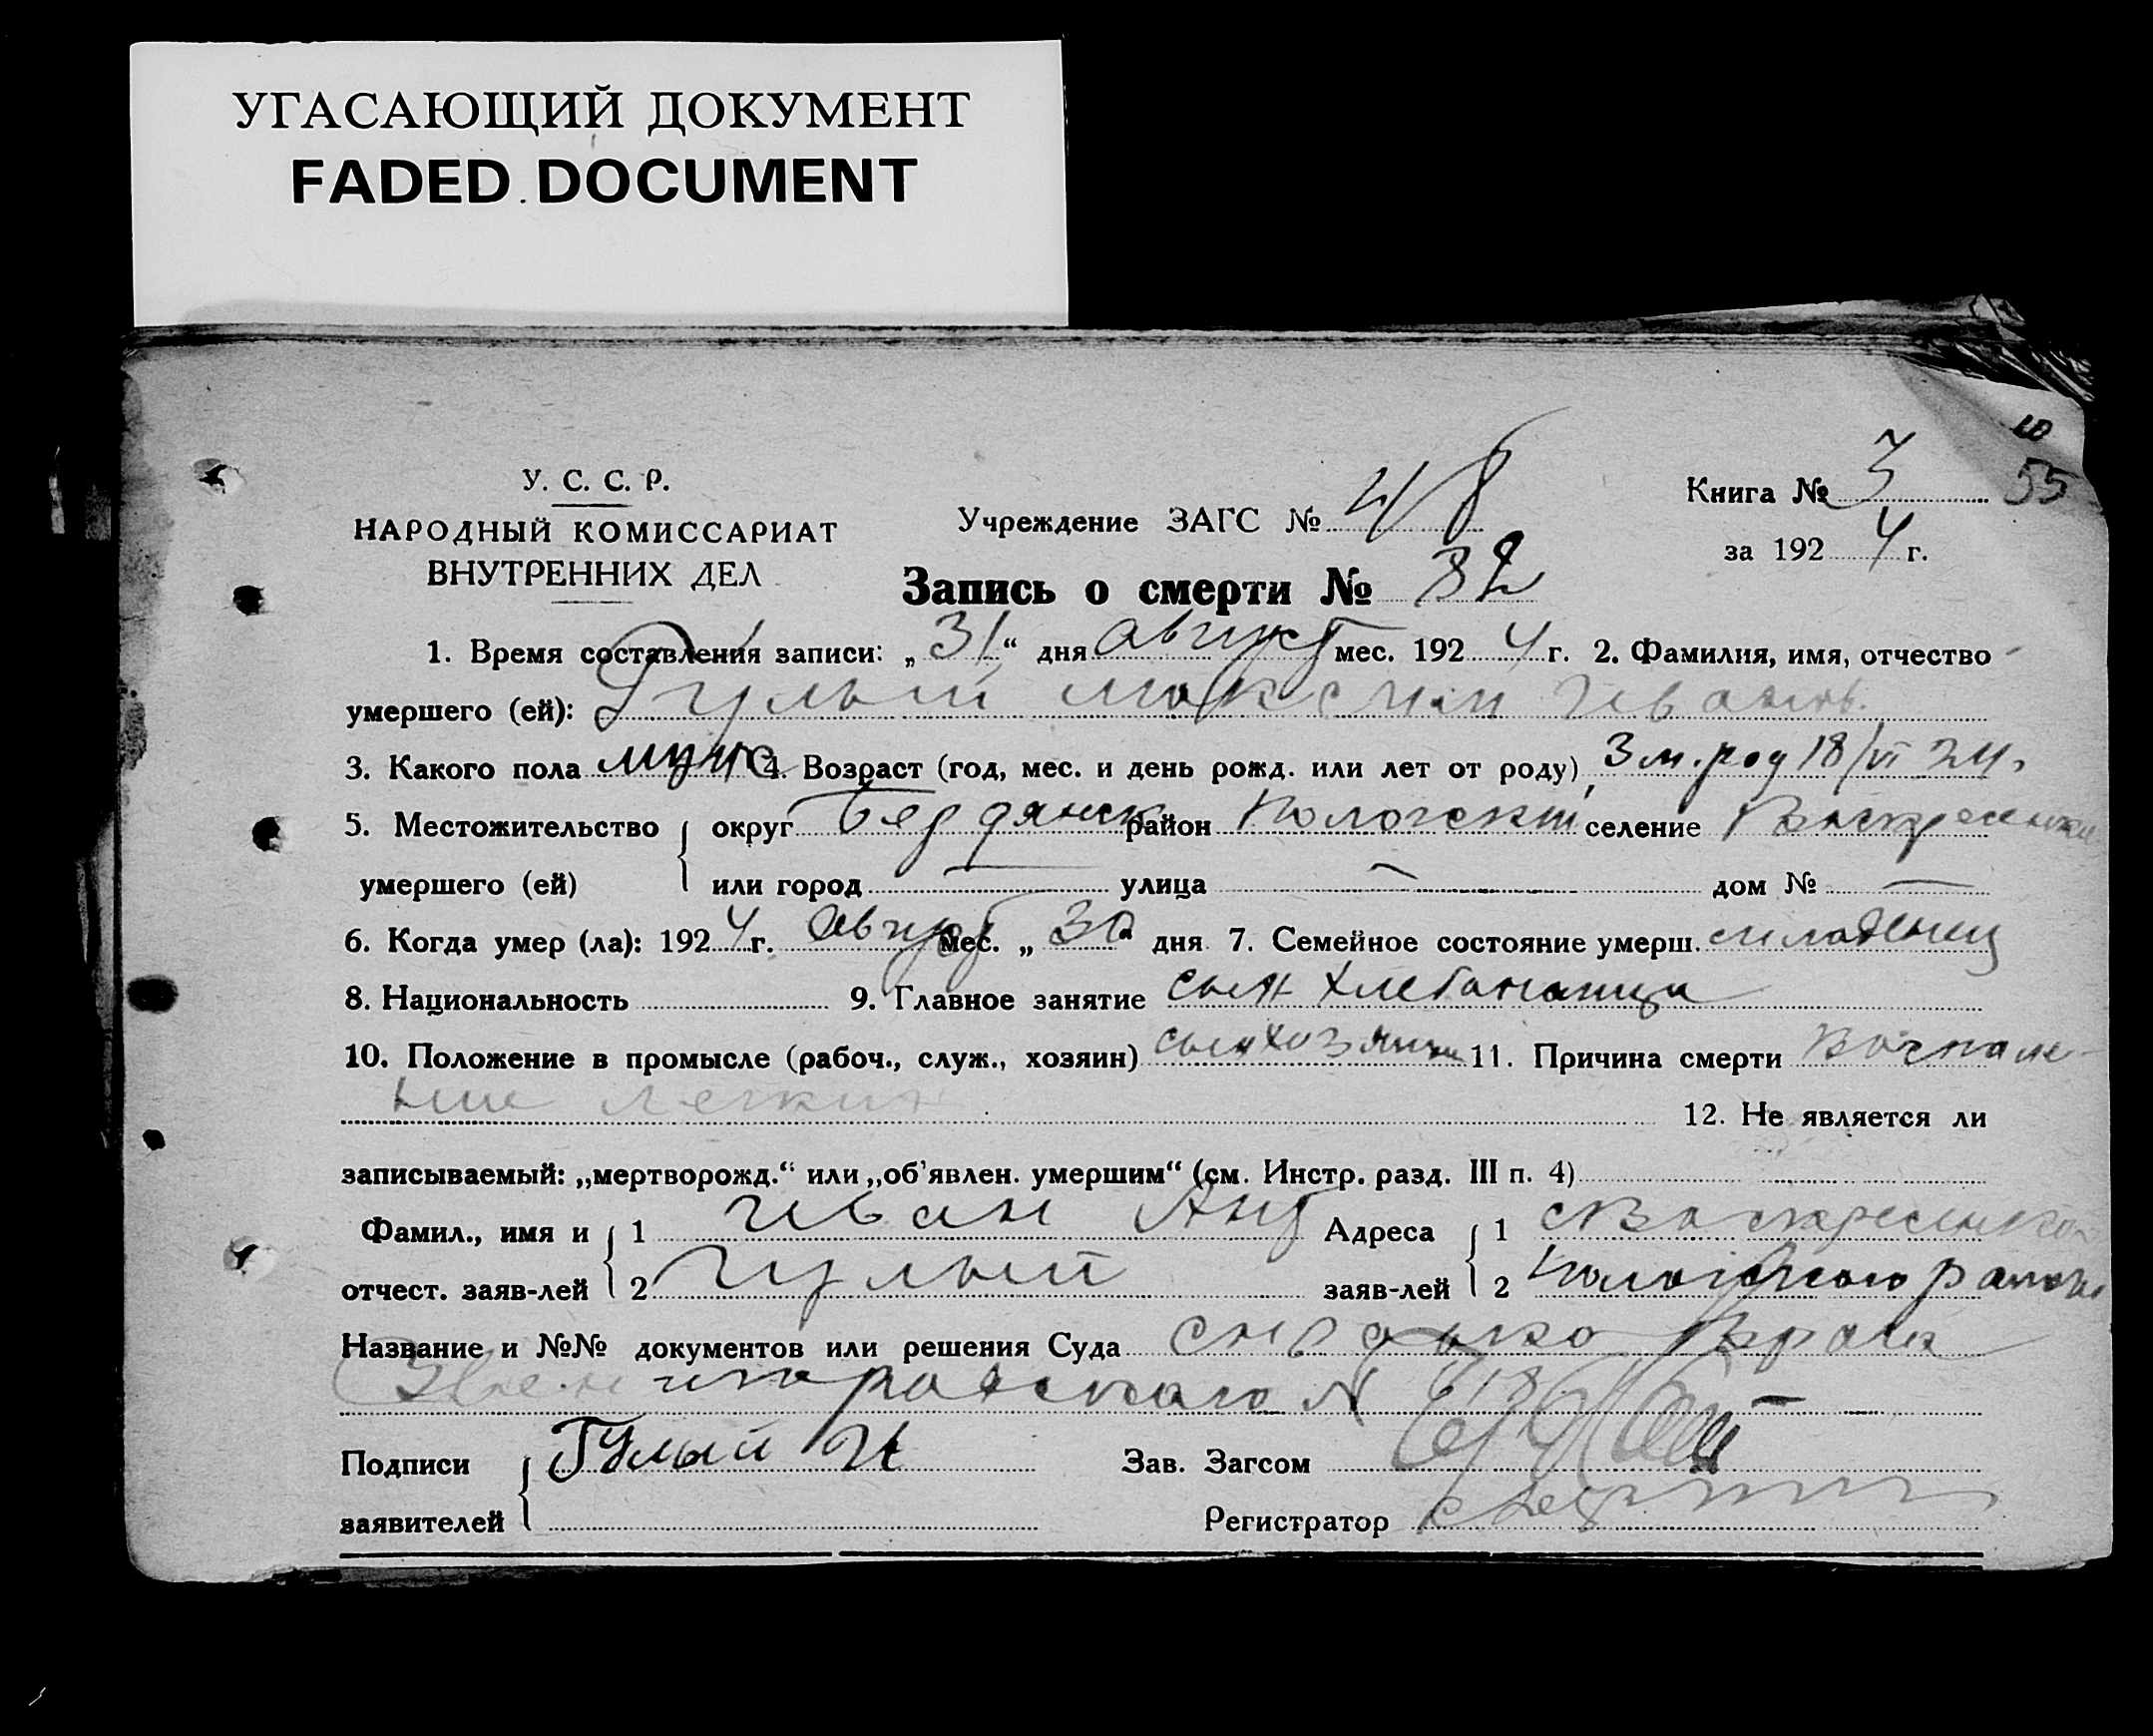 УГАСАЮЩИЙ ДОКУМЕНТ
FADED DOCUMENT
У. С. С. Р.
НАРОДНЫЙ КОМИССАРИАТ
ВНУТРЕННИХ ДЕЛ
Учреждение ЗАГС № 48
Книга № 3
55
за 1924 г.
Запись о смерти №
1. Время составления записи: „31“ дня август мес. 1924 г. 2. Фамилия, имя, отчество
умершего (ей): Гулый Максим Иванов.
3. Какого пола муж 4. Возраст (год, мес. и день рожд. или лет от роду) 3 м. род 18/VI 24.
5. Местожительство округ Бердянск район Пологский селение Воскресенка
умершего (ей) или город — улица — дом № —
6. Когда умер (ла): 1924 г. август мес. „30“ дня 7. Семейное состояние умерш. младенец
8. Национальность 9. Главное занятие сын хлебопашца
10. Положение в промысле (рабоч., служ., хозяин) сын хозяина 11. Причина смерти Воспале-
ние легких
12. Не является ли
записываемый: „мертворожд.“ или „об'явлен. умершим“ (см. Инстр. разд. III п. 4)
Фамил., имя и 1 Иван Ант Адреса 1 с Воскресенка
отчест. заяв-лей 2 Гулый заяв-лей 2 Пологского района
Название и №№ документов или решения Суда врача
№ 618
Подписи Гулый И Зав. Загсом
заявителей Регистратор